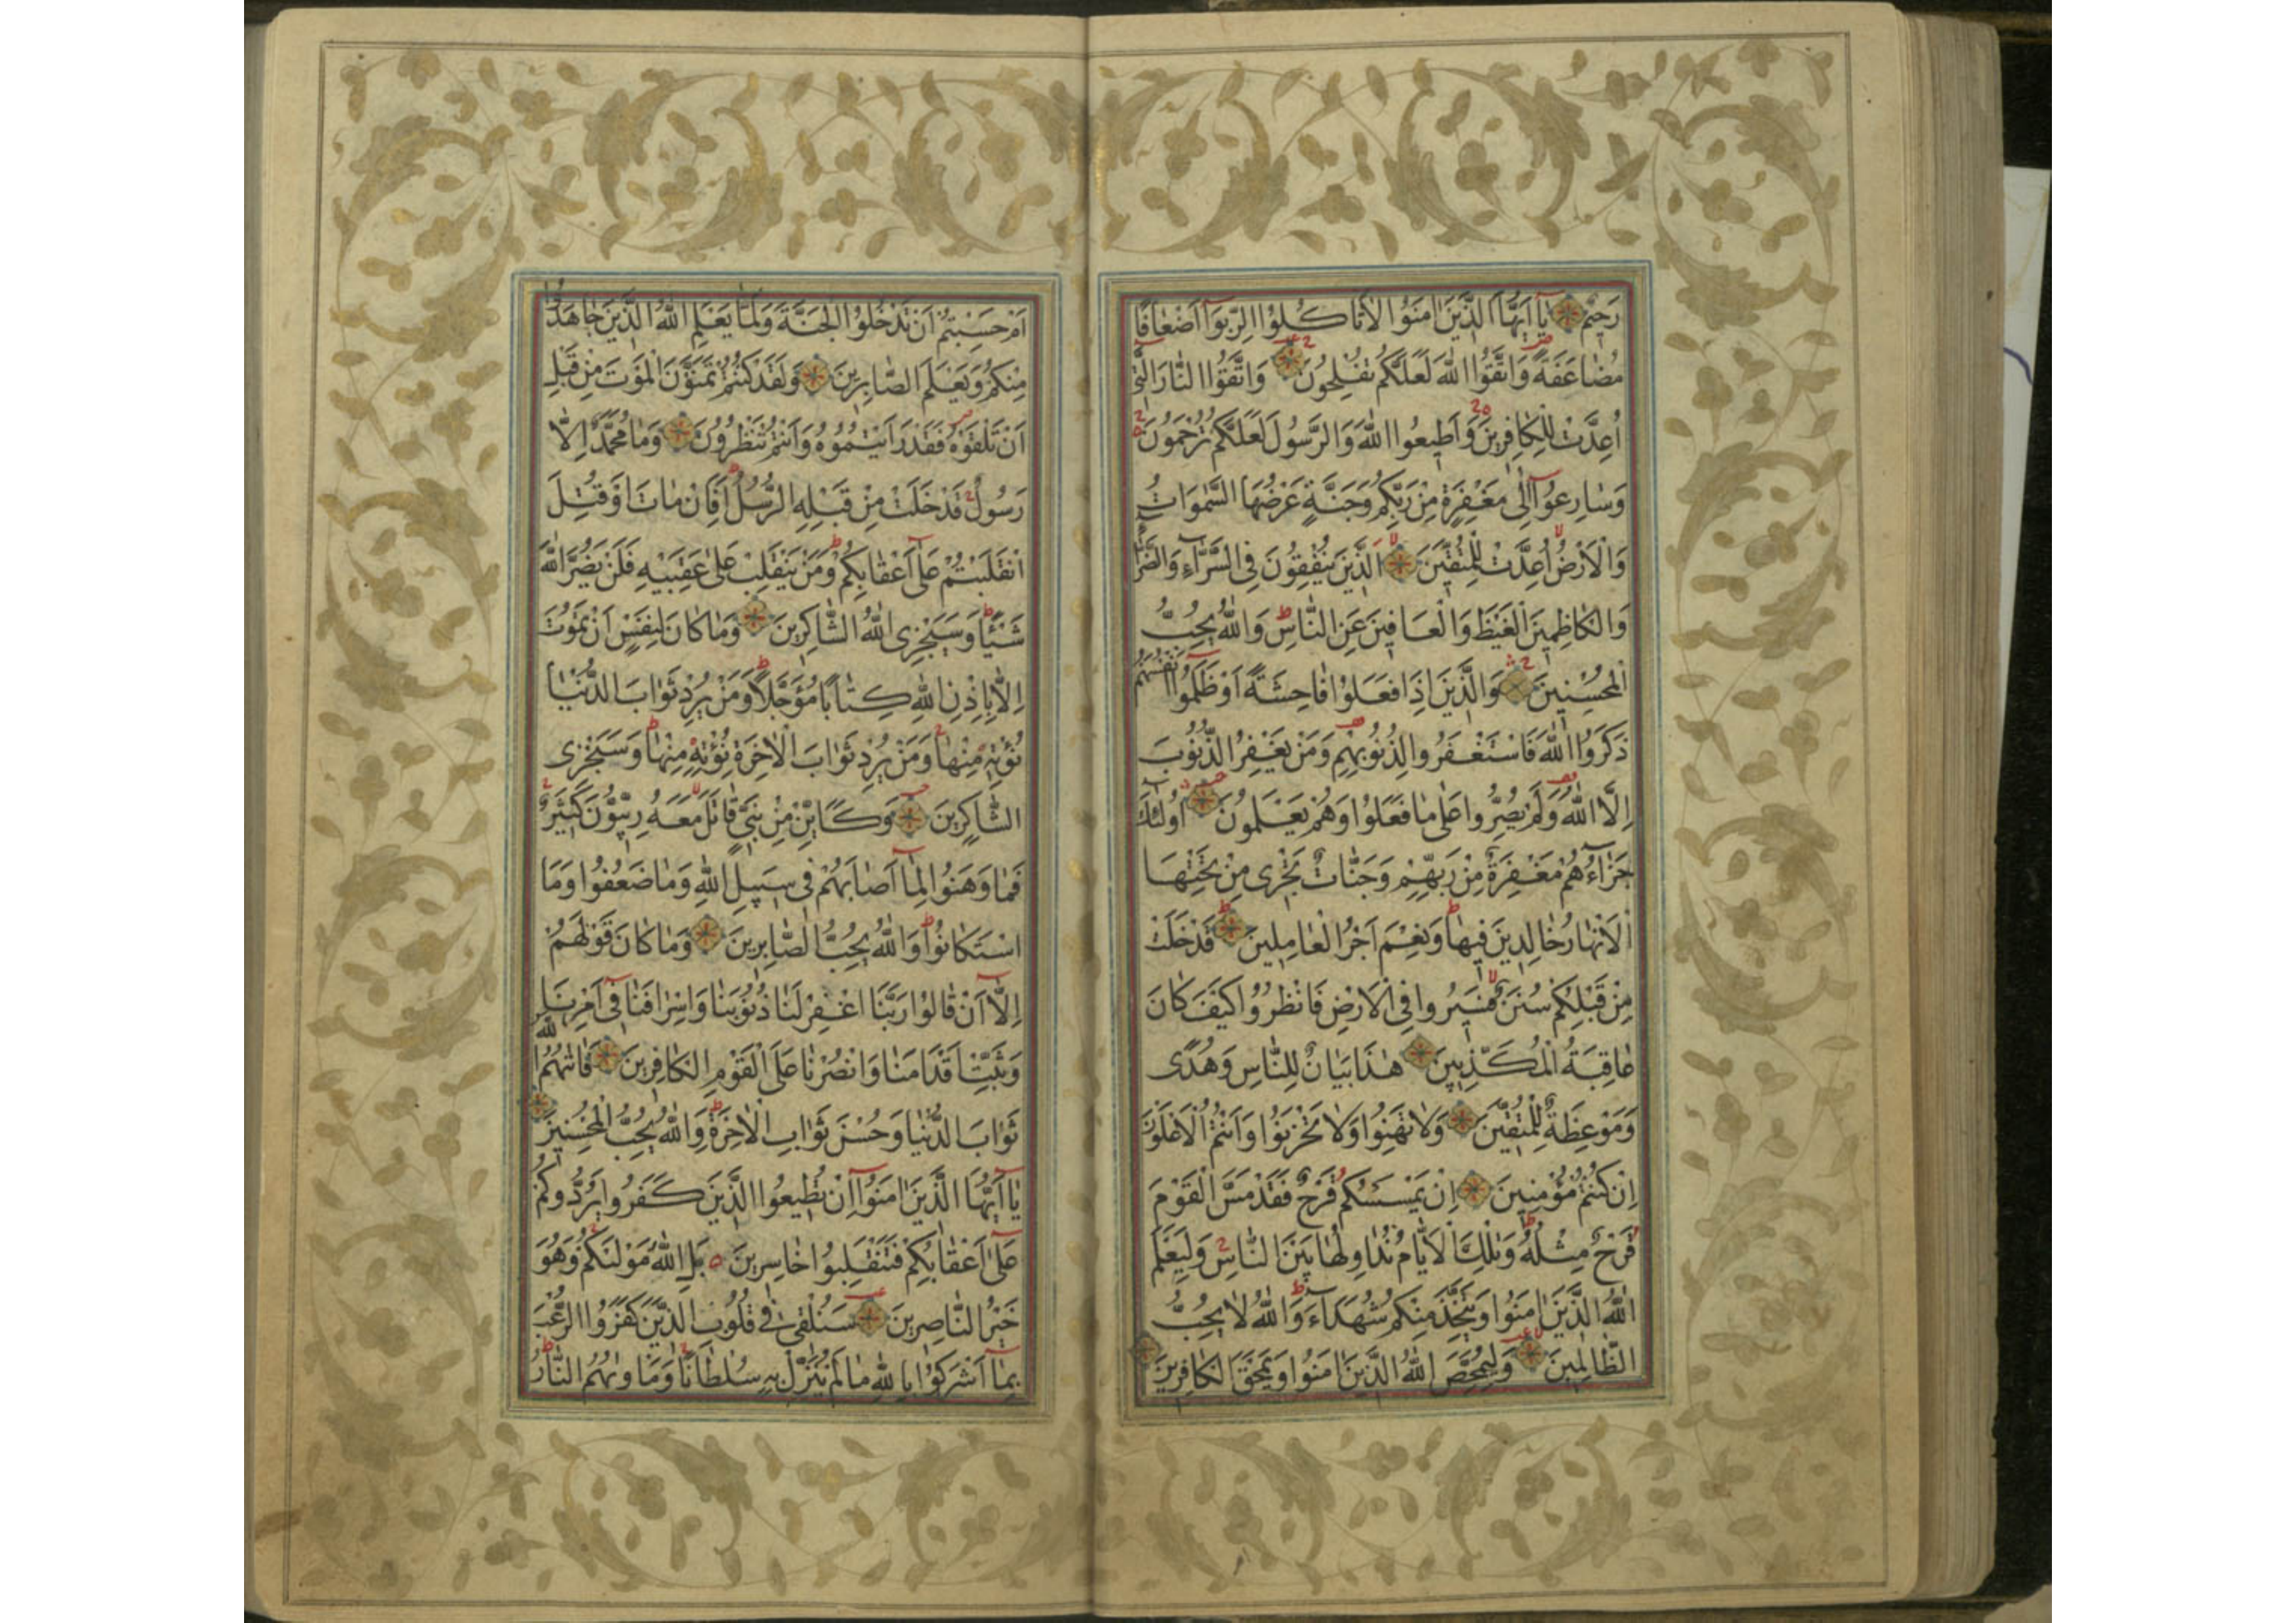 رَحِيمٌ يَا أَيُّهَا الَّذِينَ اٰمَنُوا لَا تَأْكُلُوا الرِّبٰوا أَضْعَافًا
مُضَاعَفَةً وَاتَّقُوا اللّٰهَ لَعَلَّكُمْ تُفْلِحُونَ وَاتَّقُوا النَّارَ الَّتِي
اُعِدَّتْ لِلْكَافِرِينَ وَاَطِيعُوا اللّٰهَ وَالرَّسُولَ لَعَلَّكُمْ تُرْحَمُونَ
وَسَارِعُوا اِلٰى مَغْفِرَةٍ مِنْ رَبِّكُمْ وَجَنَّةٍ عَرْضُهَا السَّمٰوَاتُ
وَالْاَرْضُ اُعِدَّتْ لِلْمُتَّقِينَ اَلَّذِينَ يُنْفِقُونَ فِي السَّرَّاءِ وَالضَّرَّاءِ
وَالْكَاظِمِينَ الْغَيْظَ وَالْعَافِينَ عَنِ النَّاسِ وَاللّٰهُ يُحِبُّ
الْمُحْسِنِينَ وَالَّذِينَ اِذَا فَعَلُوا فَاحِشَةً اَوْ ظَلَمُوا اَنْفُسَهُمْ
ذَكَرُوا اللّٰهَ فَاسْتَغْفَرُوا لِذُنُوبِهِمْ وَمَنْ يَغْفِرُ الذُّنُوبَ
اِلَّا اللّٰهُ وَلَمْ يُصِرُّوا عَلٰى مَا فَعَلُوا وَهُمْ يَعْلَمُونَ اُولٰئِكَ
جَزَاءُهُمْ مَغْفِرَةٌ مِنْ رَبِّهِمْ وَجَنَّاتٌ تَجْرِى مِنْ تَحْتِهَا
الْاَنْهَارُ خَالِدِينَ فِيهَا وَنِعْمَ اَجْرُ الْعَامِلِينَ قَدْ خَلَتْ
مِنْ قَبْلِكُمْ سُنَنٌ فَسِيرُوا فِي الْاَرْضِ فَانْظُرُوا كَيْفَ كَانَ
عَاقِبَةُ الْمُكَذِّبِينَ هٰذَا بَيَانٌ لِلنَّاسِ وَهُدًى
وَمَوْعِظَةٌ لِلْمُتَّقِينَ وَلَا تَهِنُوا وَلَا تَحْزَنُوا وَاَنْتُمُ الْاَعْلَوْنَ
اِنْ كُنْتُمْ مُؤْمِنِينَ اِنْ يَمْسَسْكُمْ قَرْحٌ فَقَدْ مَسَّ الْقَوْمَ
قَرْحٌ مِثْلُهُ وَتِلْكَ الْاَيَّامُ نُدَاوِلُهَا بَيْنَ النَّاسِ وَلِيَعْلَمَ
اللّٰهُ الَّذِينَ اٰمَنُوا وَيَتَّخِذَ مِنْكُمْ شُهَدَاءَ وَاللّٰهُ لَا يُحِبُّ
الظَّالِمِينَ وَلِيُمَحِّصَ اللّٰهُ الَّذِينَ اٰمَنُوا وَيَمْحَقَ الْكَافِرِينَ
اَمْ حَسِبْتُمْ اَنْ تَدْخُلُوا الْجَنَّةَ وَلَمَّا يَعْلَمِ اللّٰهُ الَّذِينَ جَاهَدُوا
مِنْكُمْ وَيَعْلَمَ الصَّابِرِينَ وَلَقَدْ كُنْتُمْ تَمَنَّوْنَ الْمَوْتَ مِنْ قَبْلِ
اَنْ تَلْقَوْهُ فَقَدْ رَاَيْتُمُوهُ وَاَنْتُمْ تَنْظُرُونَ وَمَا مُحَمَّدٌ اِلَّا
رَسُولٌ قَدْ خَلَتْ مِنْ قَبْلِهِ الرُّسُلُ اَفَاِنْ مَاتَ اَوْ قُتِلَ
انْقَلَبْتُمْ عَلٰى اَعْقَابِكُمْ وَمَنْ يَنْقَلِبْ عَلٰى عَقِبَيْهِ فَلَنْ يَضُرَّ اللّٰهَ
شَيْئًا وَسَيَجْزِى اللّٰهُ الشَّاكِرِينَ وَمَا كَانَ لِنَفْسٍ اَنْ تَمُوتَ
اِلَّا بِاِذْنِ اللّٰهِ كِتَابًا مُؤَجَّلًا وَمَنْ يُرِدْ ثَوَابَ الدُّنْيَا
نُؤْتِهِ مِنْهَا وَمَنْ يُرِدْ ثَوَابَ الْاٰخِرَةِ نُؤْتِهِ مِنْهَا وَسَنَجْزِى
الشَّاكِرِينَ وَكَاَيِّنْ مِنْ نَبِيٍّ قَاتَلَ مَعَهُ رِبِّيُّونَ كَثِيرٌ
فَمَا وَهَنُوا لِمَا اَصَابَهُمْ فِي سَبِيلِ اللّٰهِ وَمَا ضَعُفُوا وَمَا
اسْتَكَانُوا وَاللّٰهُ يُحِبُّ الصَّابِرِينَ وَمَا كَانَ قَوْلَهُمْ
اِلَّا اَنْ قَالُوا رَبَّنَا اغْفِرْ لَنَا ذُنُوبَنَا وَاِسْرَافَنَا فِي اَمْرِنَا
وَثَبِّتْ اَقْدَامَنَا وَانْصُرْنَا عَلَى الْقَوْمِ الْكَافِرِينَ فَاٰتٰيهُمُ اللّٰهُ
ثَوَابَ الدُّنْيَا وَحُسْنَ ثَوَابِ الْاٰخِرَةِ وَاللّٰهُ يُحِبُّ الْمُحْسِنِينَ
يَا اَيُّهَا الَّذِينَ اٰمَنُوا اِنْ تُطِيعُوا الَّذِينَ كَفَرُوا يَرُدُّوكُمْ
عَلٰى اَعْقَابِكُمْ فَتَنْقَلِبُوا خَاسِرِينَ بَلِ اللّٰهُ مَوْلٰىكُمْ وَهُوَ
خَيْرُ النَّاصِرِينَ سَنُلْقِى فِي قُلُوبِ الَّذِينَ كَفَرُوا الرُّعْبَ
بِمَا اَشْرَكُوا بِاللّٰهِ مَا لَمْ يُنَزِّلْ بِهِ سُلْطَانًا وَمَاْوٰيهُمُ النَّارُ